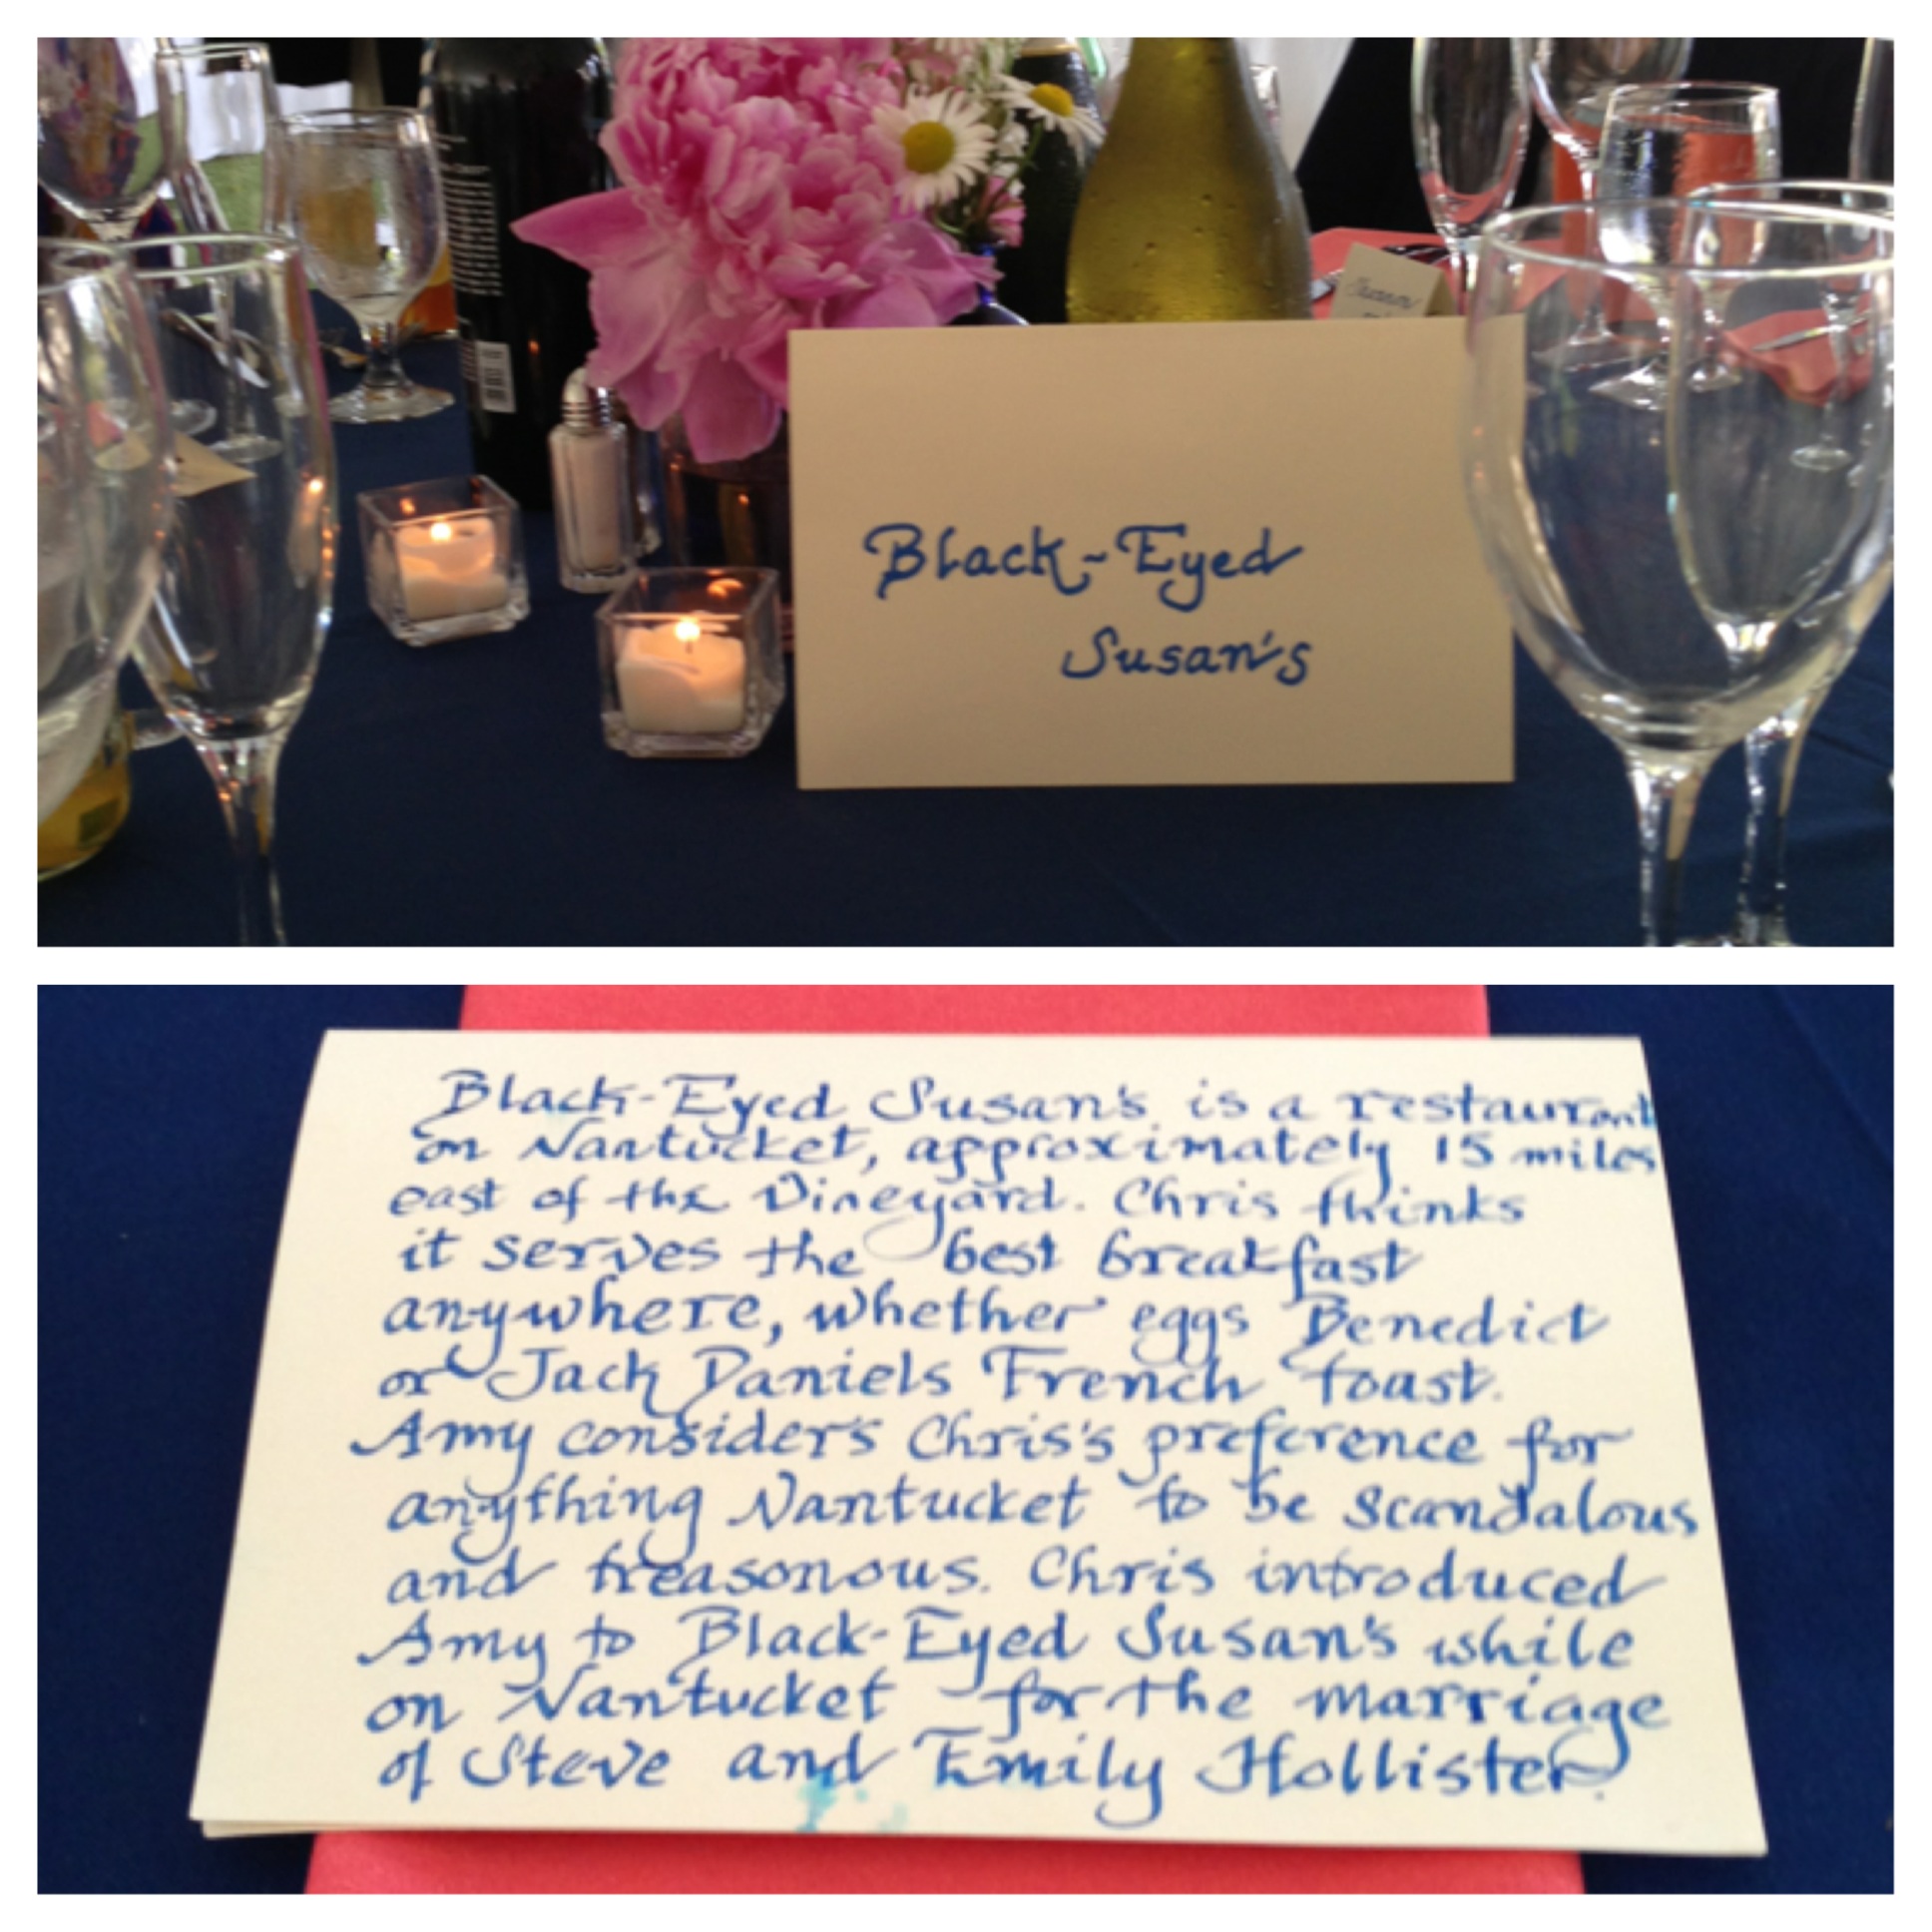 Black-Eyed
Susan's
Black-Eyed Susan's is a restaurant
on Nantucket, approximately 15 miles
east of the Vineyard. Chris thinks
it serves the best breakfast
anywhere, whether eggs Benedict
or Jack Daniels French toast.
Amy considers Chris's preference for
anything Nantucket to be scandalous
and treasonous. Chris introduced
Amy to Black-Eyed Susan's while
on Nantucket for the marriage
of Steve and Emily Hollister.